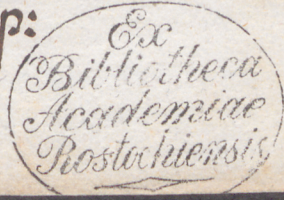 p:
Ex
Bibliotheca
Academiae
Rostochiensis